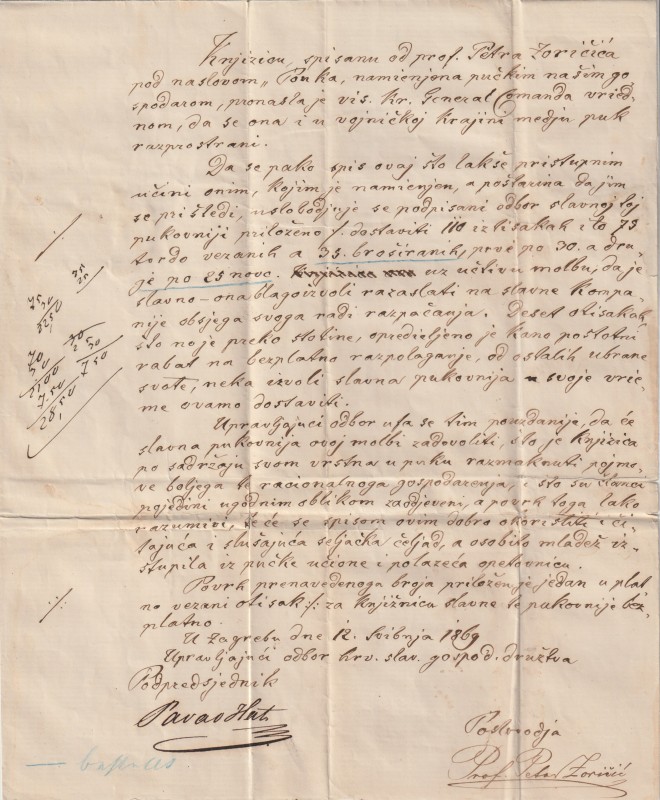 Knjižicu, spisanu od prof. Petra Zoričića
pod naslovom „Pouka, namienjena pučkim našim go
spodarom, pronašla je vis. kr. General Comanda vried-
nom, da se ona i u vojničkoj krajini medju puk
razprostrani.
Da se pako spis ovaj što lakše pristupnim
učini onim, kojim je namienjen, a poštarina da jim
se prištedi, uslobodjuje se podpisani odbor slavnoj toj
pukovniji priloženo ·/. dostaviti 110 iztisakah i to 75
tvrdo vezanih a 35. broširanih, prve po 30. a dru-
ge po 25 novč. uz učtivu molbu, da je
slavno-ona blagoizvoli razaslati na slavne kompa-
nije obsjega svoga radi razpačanja. Deset otisakah
što no je preko stotine, opredieljeno je kano postotni
rabat na bezplatno razpolaganje, od ostalih ubrane
svote, neka izvoli slavna pukovnija svoje vrie-
me ovamo dostaviti.
Upravljajući odbor ufa se tim pouzdanije, da će
slavna pukovnija ovoj molbi zadovoliti, što je knjižica
po sadržaju svom vrstna u puku razmaknuti pojmo-
ve boljega te racionalnoga gospodarenja, i što su članci
pojedini ugodnim oblikom zaodjeveni, a povrh toga lako
razumivi, te će se spisom ovim dobro okoristiti i či-
tajuća i slušajuća seljačka čeljad, a osobito mladež iz-
stupila iz pučke učione i polazeća opetovnicu.
Povrh prenavedenoga broja priložen je jedan u plat
no vezani otisak ·/: za knjižnicu slavne te pukovnije bez
platno.
U Zagrebu dne 12. Svibnja 1869
Upravljajući odbor hrv. slav. gospod. družtva
Podpredsjednik
Pavao Hat
Poslovodja
Prof. Petar Zoričić
·/.
75
30
22,50
35
25
70
30
21,00
7,50
28,50
30
2 50
7 50
·/: